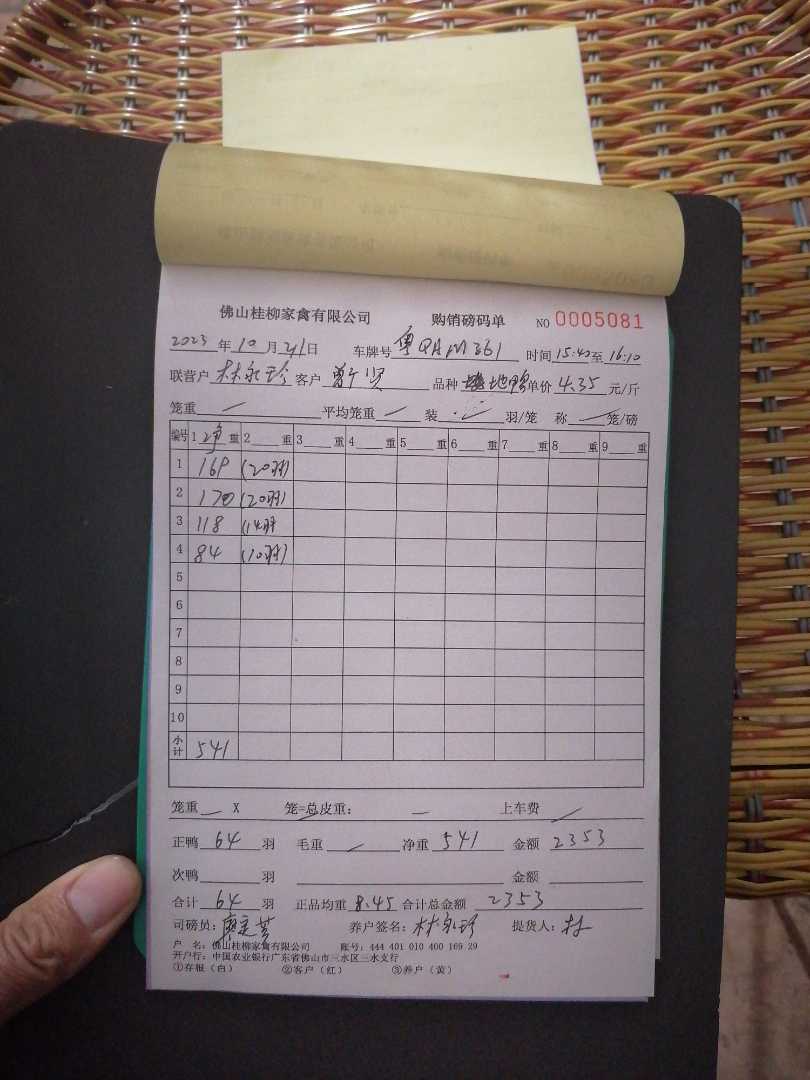 佛山桂柳家禽有限公司 购销磅码单 NO 0005081
2023 年 10 月 21 日 车牌号 粤QAM361 时间 15:40 至 16:10
联营户 林永珍 客户 品种 地鸭 单价 4.35 元/斤
笼重 平均笼重 装 羽/笼 称 笼/磅
编号 1 净 重 2 重 3 重 4 重 5 重 6 重 7 重 8 重 9 重
1 169 (20羽)
2 170 (20羽)
3 118 (14羽
4 84 (10羽)
5
6
7
8
9
10
小计 541
笼重 X 笼=总皮重: 上车费
正鸭 64 羽 毛重 净重 541 金额 2353
次鸭 羽 金额
合计 64 羽 正品均重 8.45 合计总金额 2353
司磅员: 养户签名: 林永珍 提货人:
户 名: 佛山桂柳家禽有限公司 账号: 444 401 010 400 169 29
开户行: 中国农业银行广东省佛山市三水区三水支行
①存根(白) ②客户(红) ③养户(黄)